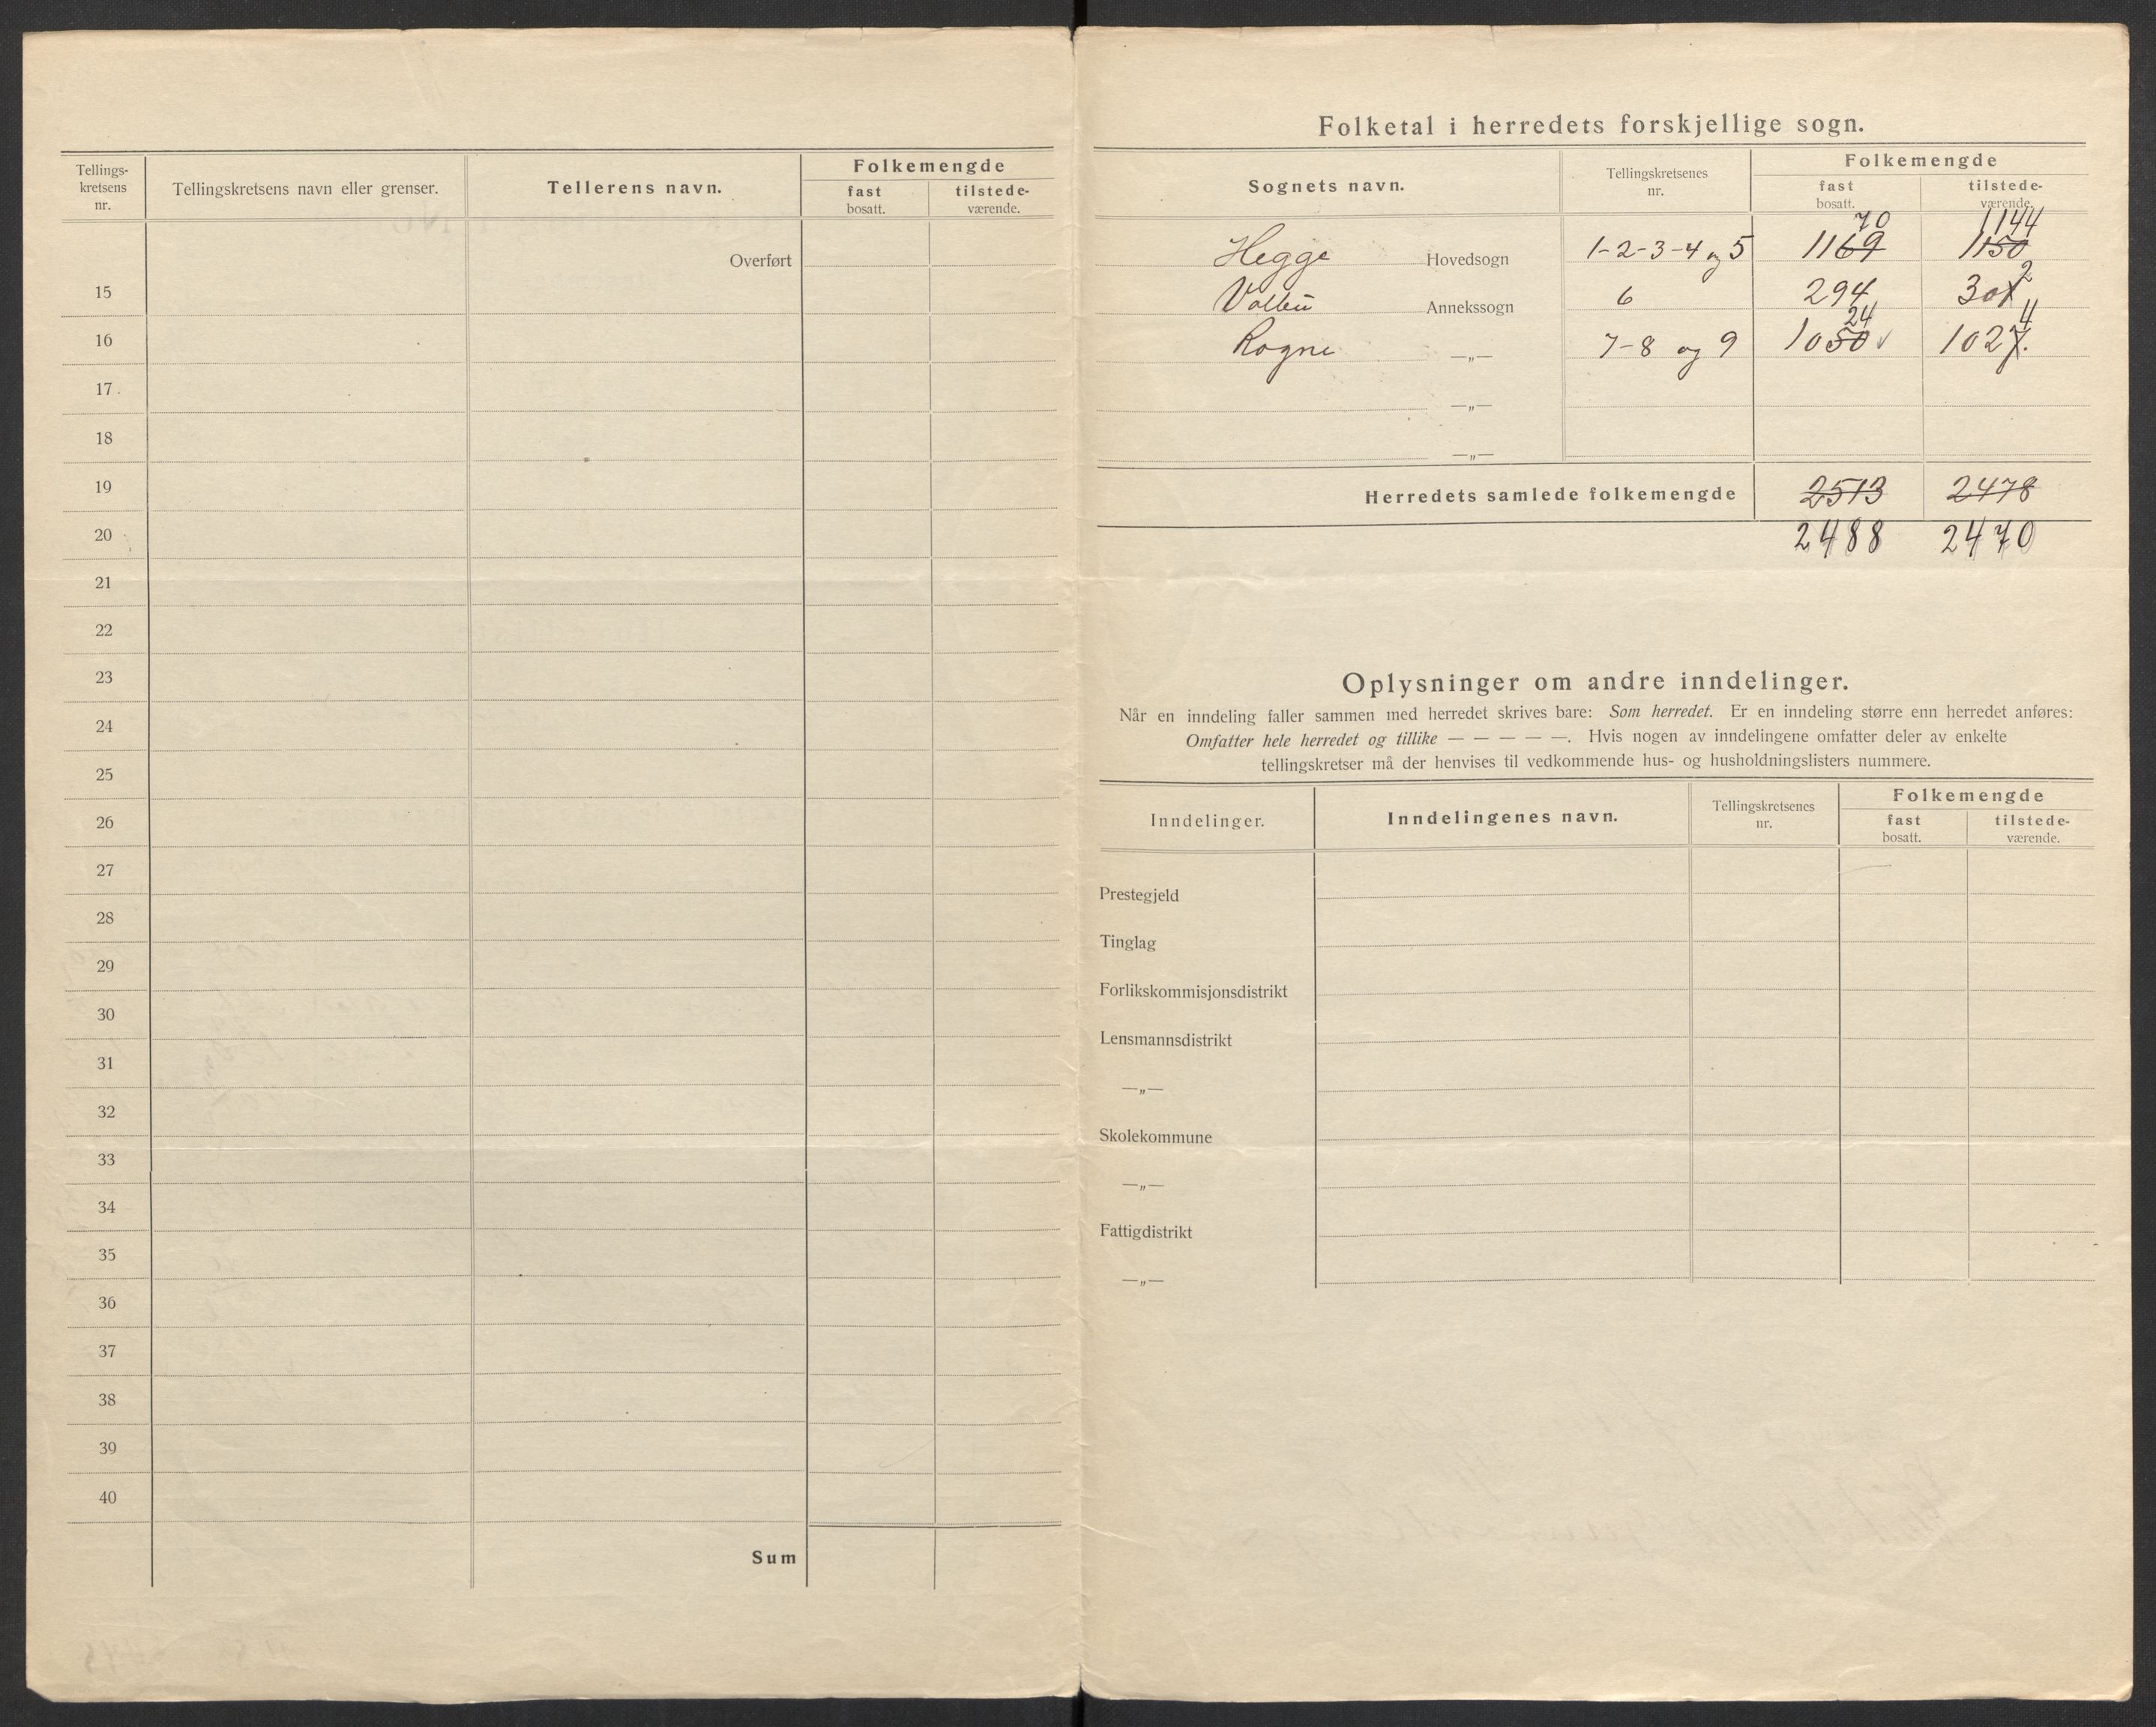 Tellings-
kretsens
nr.
Tellingskretsens navn eller grenser.
Tellerens navn.
Folkemengde
fast
bosatt.
tilstede-
værende.
Overført
15
16
17
18
19
20
21
22
23
24
25
26
27
28
29
30
31
32
33
34
35
36
37
38
39
40
Sum
Folketal i herredets forskjellige sogn.
Sognets navn.
Tellingskretsenes
nr.
Folkemengde
fast
bosatt.
tilstede-
værende.
70 1144
Hegge Hovedsogn 1-2-3-4 og 5 1169 1150
2
Volbu Annekssogn 6 294 301
24 4
Rogne —„— 7-8 og 9 1050 1027.
—„—
—„—
Herredets samlede folkemengde 2513 2478
2488 2470
Oplysninger om andre inndelinger.
Når en inndeling faller sammen med herredet skrives bare: Som herredet. Er en inndeling større enn herredet anføres:
Omfatter hele herredet og tillike — — — — —. Hvis nogen av inndelingene omfatter deler av enkelte
tellingskretser må der henvises til vedkommende hus- og husholdningslisters nummere.
Inndelinger.
Inndelingenes navn.
Tellingskretsenes
nr.
Folkemengde
fast
bosatt.
tilstede-
værende.
Prestegjeld
Tinglag
Forlikskommisjonsdistrikt
Lensmannsdistrikt
—„—
Skolekommune
—„—
Fattigdistrikt
—„—